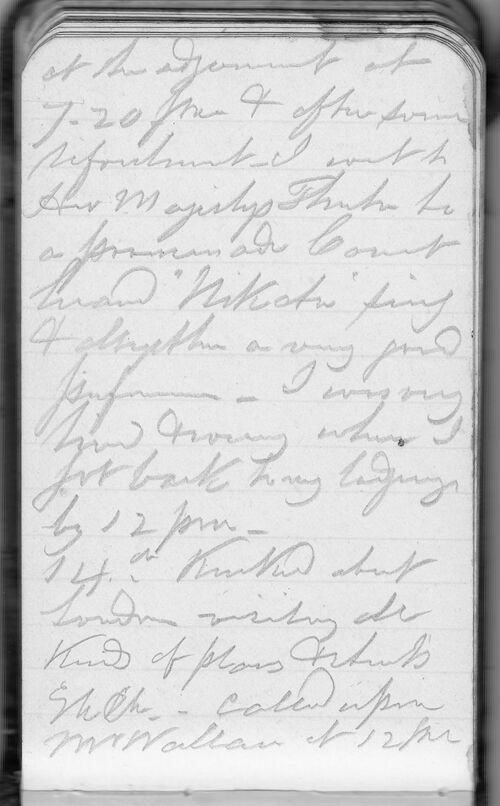 at the adjournment at
7-20 pm & after some
refreshment - I went to
Her Majestys Theatre to
a promenade Concert
heard "Nikita" sing
& altogether a very good
performance - I was very
tired & weary when I
got back to my lodgings
by 12 pm -
14th. Knocked about
London visiting all
Kinds of places & streets
Etc Etc. - called upon
Mr Wallace at 12 pm